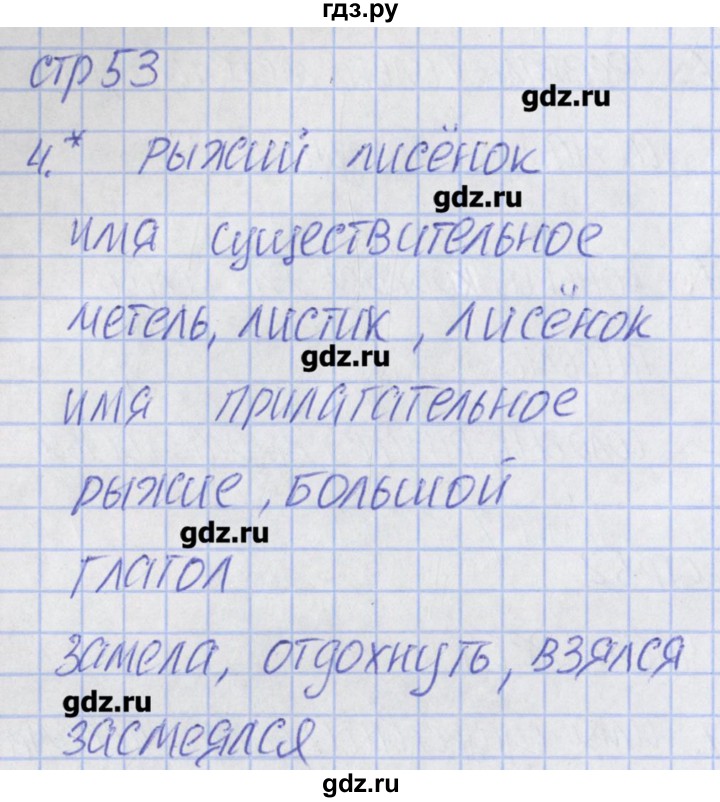 гдз.ру
стр 53
gdz.ru
4.* рыжий лисёнок
gdz.ru
имя существительное
метель, листик, лисёнок
gdz.ru
имя прилагательное
рыжие, большой
gdz.ru
глагол
замела, отдохнуть, взялся
gdz.ru
засмеялся
gdz.ru